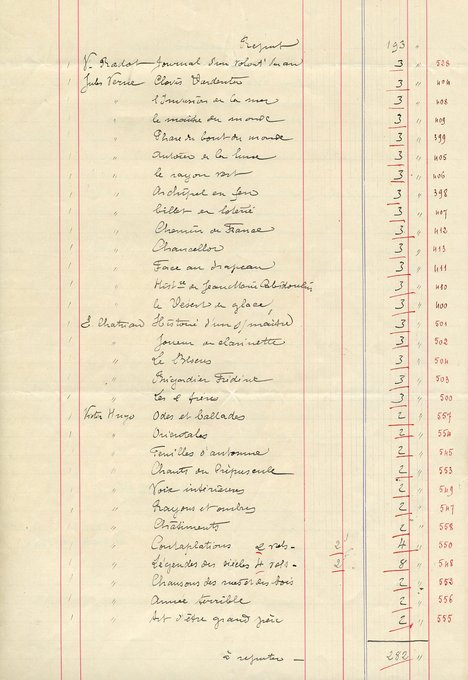 Report 193 "
1 V. Radot Journal d'un Volontre d'un an 3 " 528
1 Jules Verne Clovis Dardentor 3 " 404
" l'Invasion de la mer 3 " 408
" le maître du monde 3 " 409
" Phare du bout du monde 3 " 399
" Autour de la lune 3 " 405
1 " le rayon vert 3 " 406
" Archipel en feu 3 " 398
" billet de loterie 3 " 407
" Chemin de France 3 " 412
" Chancellor 3 " 413
" Face au drapeau 3 " 411
" Histre de Jean Marie Cabidoulin 3 " 410
" le Désert de glace 3 " 400
1 E. Chatrian Histoire d'un s/maître 3 " 501
" Joueur de clarinette 3 " 502
" Le Blocus 3 " 504
" Brigadier Frédéric 3 " 503
1 " Les 2 frères 3 " 500
1 Victor Hugo Odes et ballades 2 " 557
" Orientales 2 " 554
" Feuilles d'automne 2 " 545
" Chants du Crépuscule 2 " 553
" Voix intérieures 2 " 549
" Rayons et ombres 2 " 547
" Châtiments 2 " 558
" Contemplations 2 vols - 2 4 " 550
" Légendes des siècles 4 vols - 2 8 " 548
" Chansons des rues et des bois 2 " 552
" Année terrible 2 " 556
" Art d'être grand père 2 " 555
à reporter — 282 "